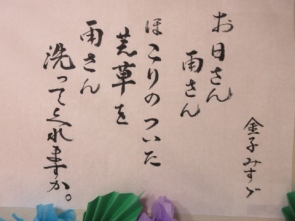 お日さん
雨さん
金子みすゞ
ほこりのついた
芝草を
雨さん
洗ってくれますか。